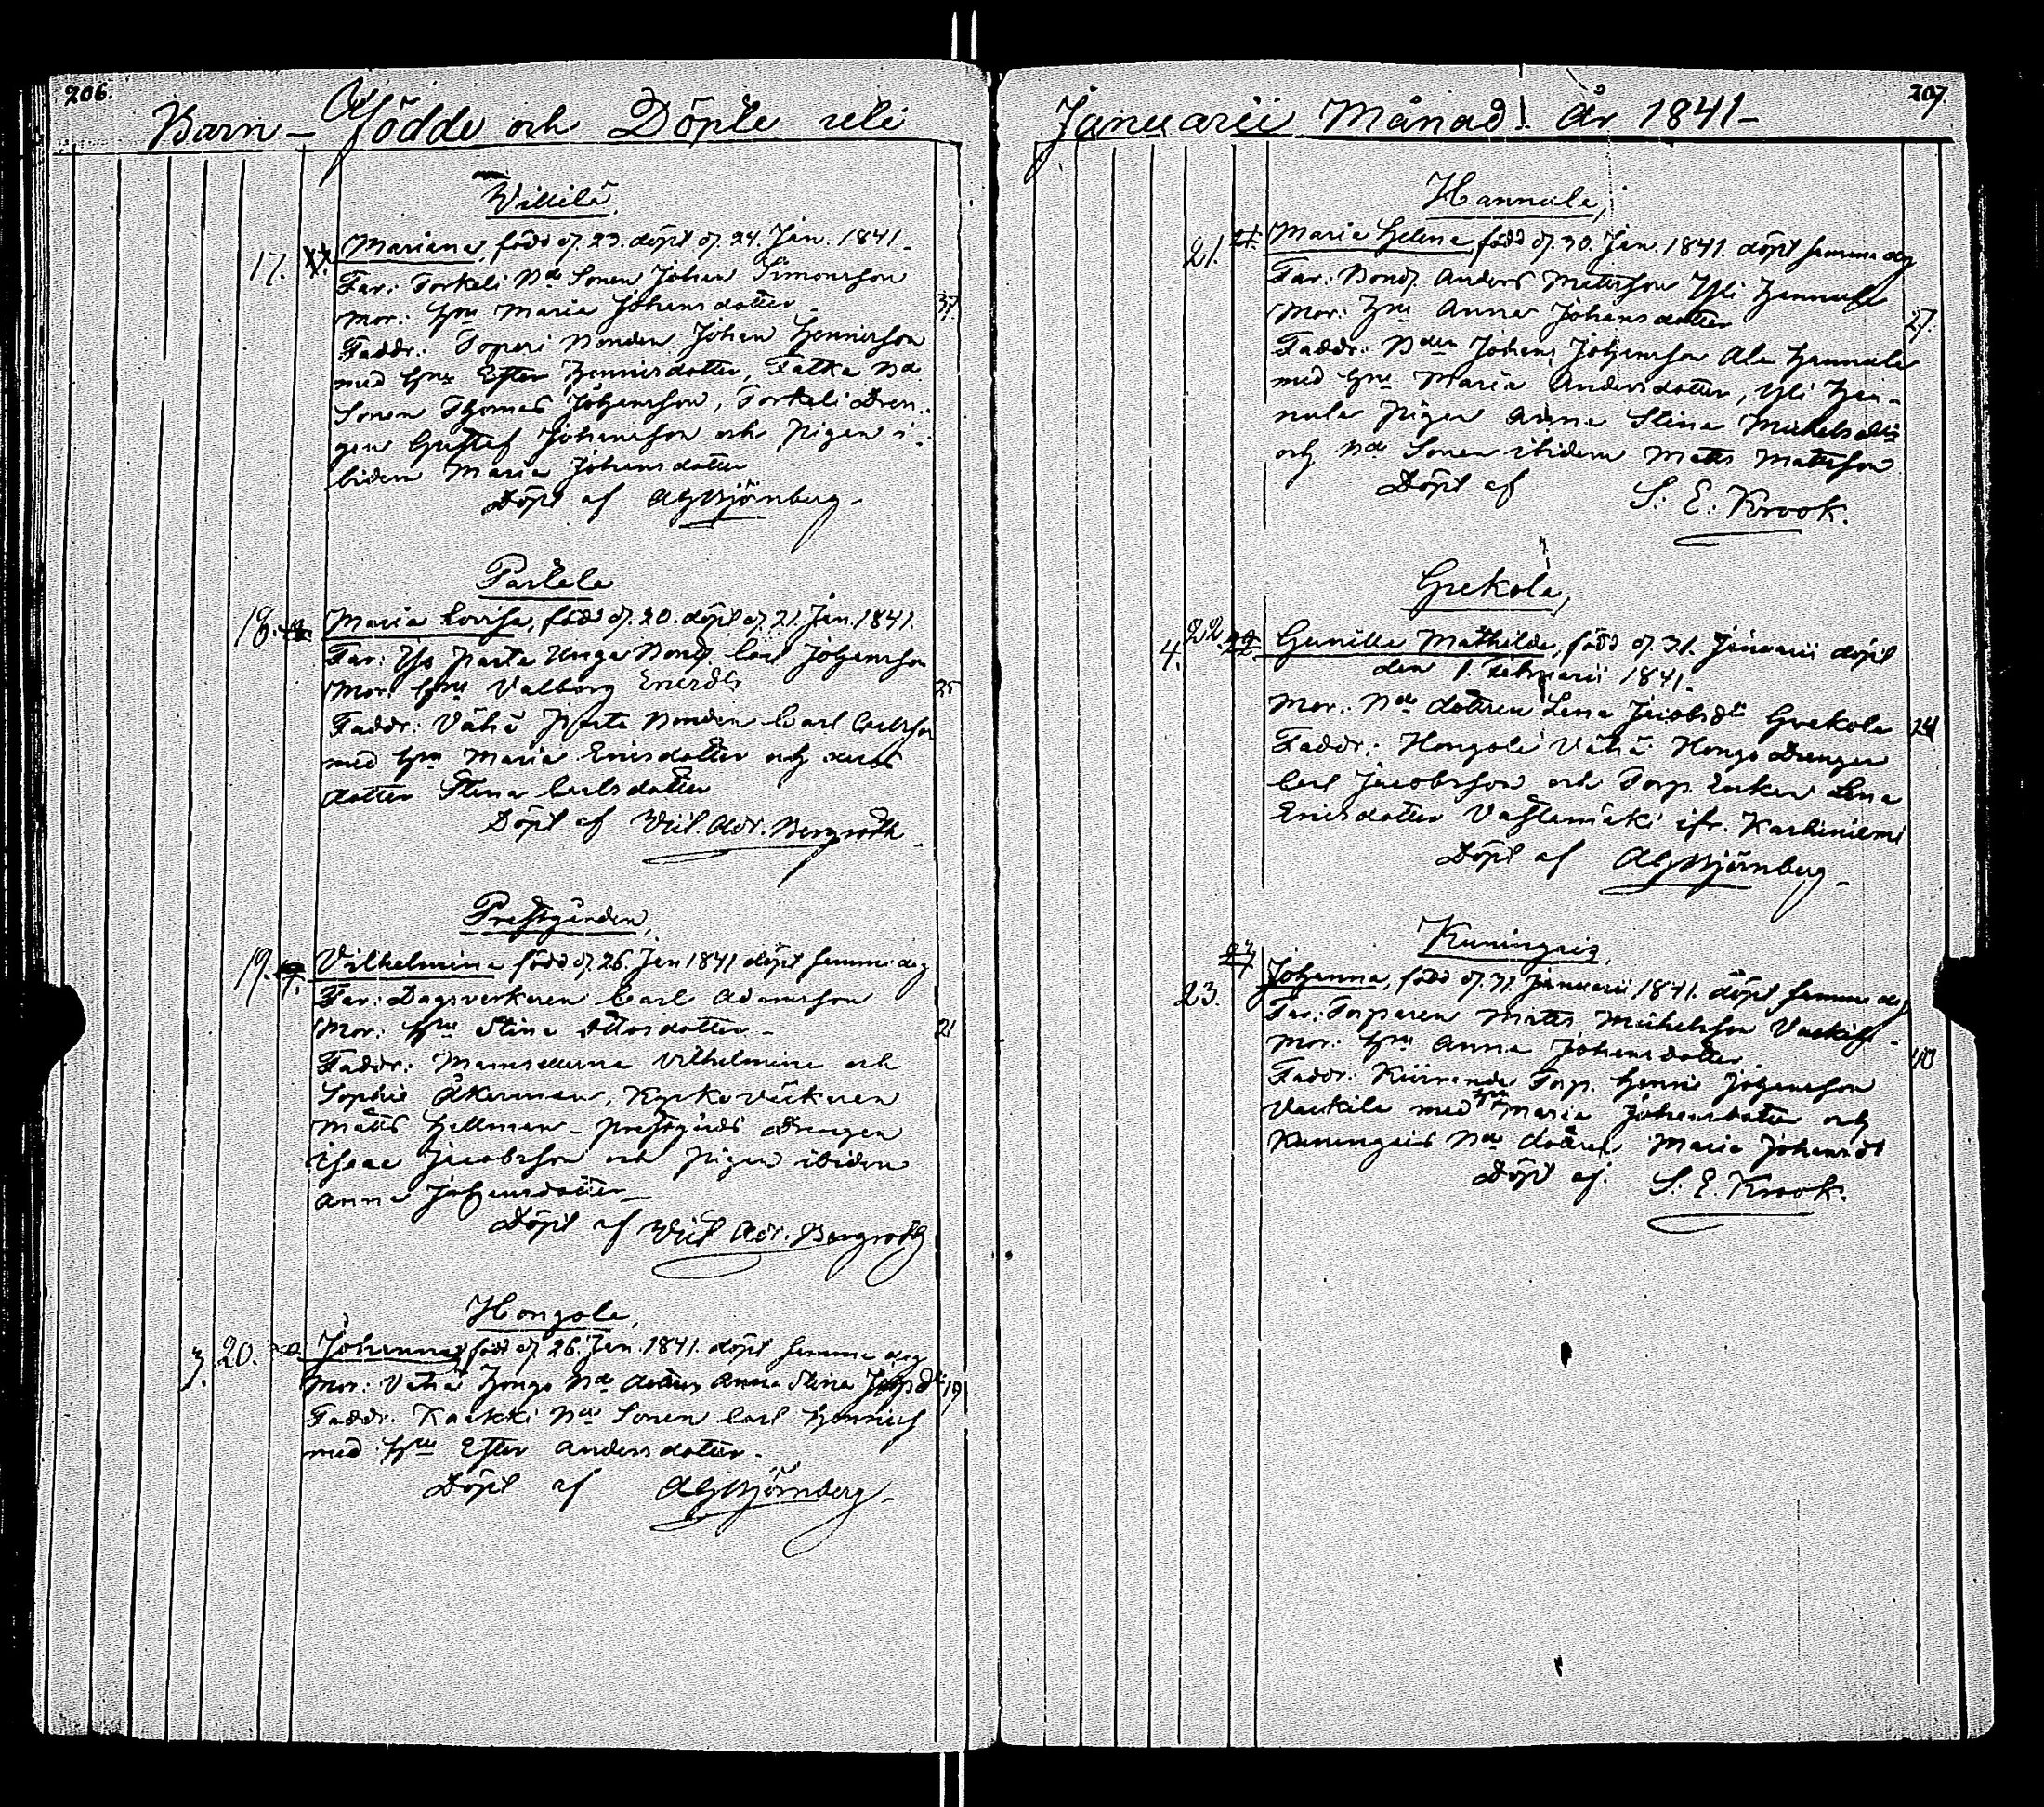 206.
Barn - Födde och Döpte uti
Willilä
17. Mariana, född d. 23. döpt d. 24. Jan. 1841.
Far: Torkeli Bde Sonen Johan Simonsson
Mor: hu Maria Johansdotter 37.
Faddr: Toperi Bonden Johan Henricsson
med hu Ester Henricsdotter, Bde
Sonen Thomas Johansson, Torkeli Dren-
gen Gustaf Johansson och Pigan i-
bidem Maria Johansdotter
Döpt af AGBjörnberg
Partela
18. Maria Lovisa, född d. 20. döpt d. 21. Jan. 1841.
Far: Parta Unga Bond. Carl Johansson
Mor: hu Valborg Ericsdr 35
Faddr: Vähä Parta Bonden Carl Carlsson
med hu Maria Ericsdotter och deras
dotter Stina Carlsdotter
Döpt af Wil. Adr. Bergroth
Prestgården,
19. Vilhelmina född d. 26. Jan 1841 döpt samma dag
Far: Dagsverkaren Carl Adamsson
Mor: hu Stina Ottosdotter 21
Faddr: Mamsellerna Vilhelmina och
Sophie Åkerman, Kyrkoväktaren
Matts Hellman - prestgårds Drengen
Isaac Jacobsson och Pigan ibidem
Anna Johansdotter
Döpt af Wil Adr. Bergroth
Hongola,
3. 20. Johanna, född d. 26. Jan. 1841. döpt samma dag
Mor: Vähä Hongo Bde dottren Anna Stina 19
Faddr. Kaakki Bde Sonen Carl Henricss
med hu Ester Andersdotter.
Döpt af AGBjörnberg
207.
Januarii Månad! År 1841
Hannula,
21. 21. Maria Helena, född d. 30. Jan. 1841. döpt samma dag
Far: Bond. Anders Mattsson Yli Hannula
Mor: Hu Anna Johansdotter 27.
Faddr: Bden Johan Johansson Ala Hannula
med hu Maria Andersdotter, Yli Han-
nula Pigan Anna Stina Michelsdtr
och Bde Sonen ibidem Matts Mattsson
Döpt af S. E. Krook.
Grekola,
4. 22. 22. Gunilla Mathilda, född d. 31. Januarii döpt
den 1. Februarii 1841.
Mor: Bde dottren Lena Jacobsdtr Grekola 24
Faddr: Hongola Vähä Hongo Drengen
Carl Jacobsson och Torp. Enkan Lena
Ericsdotter Vastamäki ifr. Karhiniemi
Döpt af AGBjörnberg
Kuningais,
23. Johanna, född d. 31. Januarii 1841. döpt samma dag
Far: Torparen Matts Michelsson Vackila
Mor: hu Anna Johansdotter 40
Faddr: Torp. Henric Johansson
Vackila med hu Maria Johansdotter och
Kuningais Bde dottren Maria Johansdr
Döpt af. S. E. Krook.